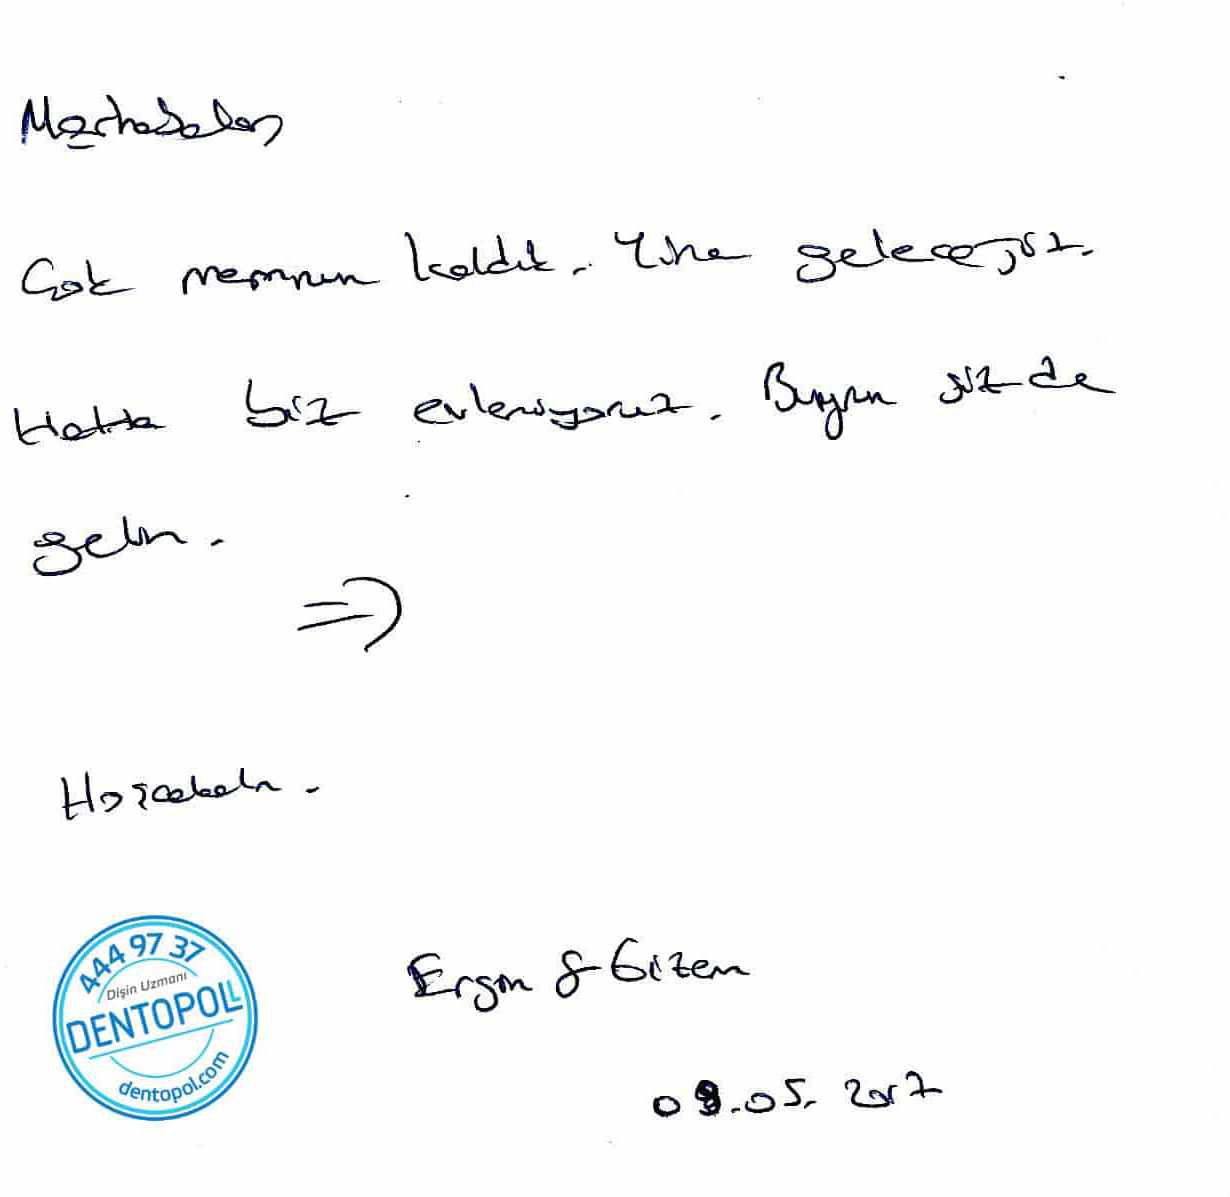 Merhabalar
Çok memnun kaldık. Yine geleceğiz.
Hatta biz evleniyoruz. Buyrun siz de
gelin.
=)
Hoşçakalın.
444 97 37
Dişin Uzmanı
DENTOPOLL
dentopol.com
Ergin & Gizem
08.05.2017